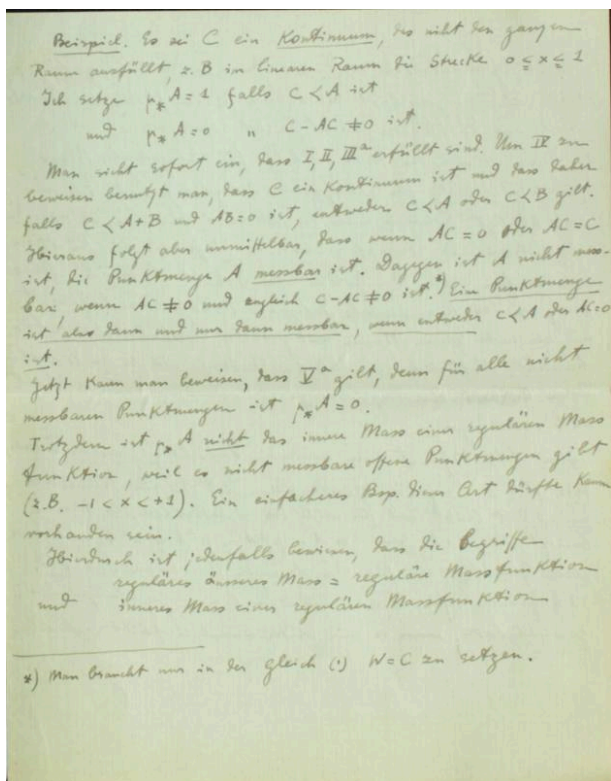 Beispiel. Es sei C ein Kontinuum, das nicht den ganzen
Raum ausfüllt, z. B in linearen Raum die Strecke 0 ≤ x ≤ 1
Ich setze μ_* A = 1 falls C < A ist
und μ_* A = 0 " C - AC ≠ 0 ist.
Man sieht sofort ein, dass I, II, III^a erfüllt sind. Um IV zu
beweisen benutzt man, dass C ein Kontinuum ist und dass daher
falls C < A+B und AB = 0 ist, entweder C < A oder C < B gilt.
Hieraus folgt aber unmittelbar, dass wenn AC = 0 oder AC = C
ist, die Punktmenge A messbar ist. Dagegen ist A nicht mess-
bar, wenn AC ≠ 0 und zugleich C - AC ≠ 0 ist. *) Ein Punktmenge
ist also dann und nur dann messbar, wenn entweder C < A oder AC = 0
ist.
Jetzt kann man beweisen, dass V^a gilt, denn für alle nicht
messbaren Punktmengen ist μ_* A = 0.
Trotzdem ist μ_* A nicht das innere Mass einer regulären Mass
funktion, weil es nicht messbare offene Punktmengen gibt
(z. B. -1 < x < +1). Ein einfacheres Bsp. dieser Art dürfte kaum
vorhanden sein.
Hierdurch ist jedenfalls bewiesen, dass die Begriffe
reguläres äusseres Mass = reguläre Massfunktion
und inneres Mass einer regulären Massfunktion
*) Man braucht nur in der Gleich (1) W = C zu setzen.